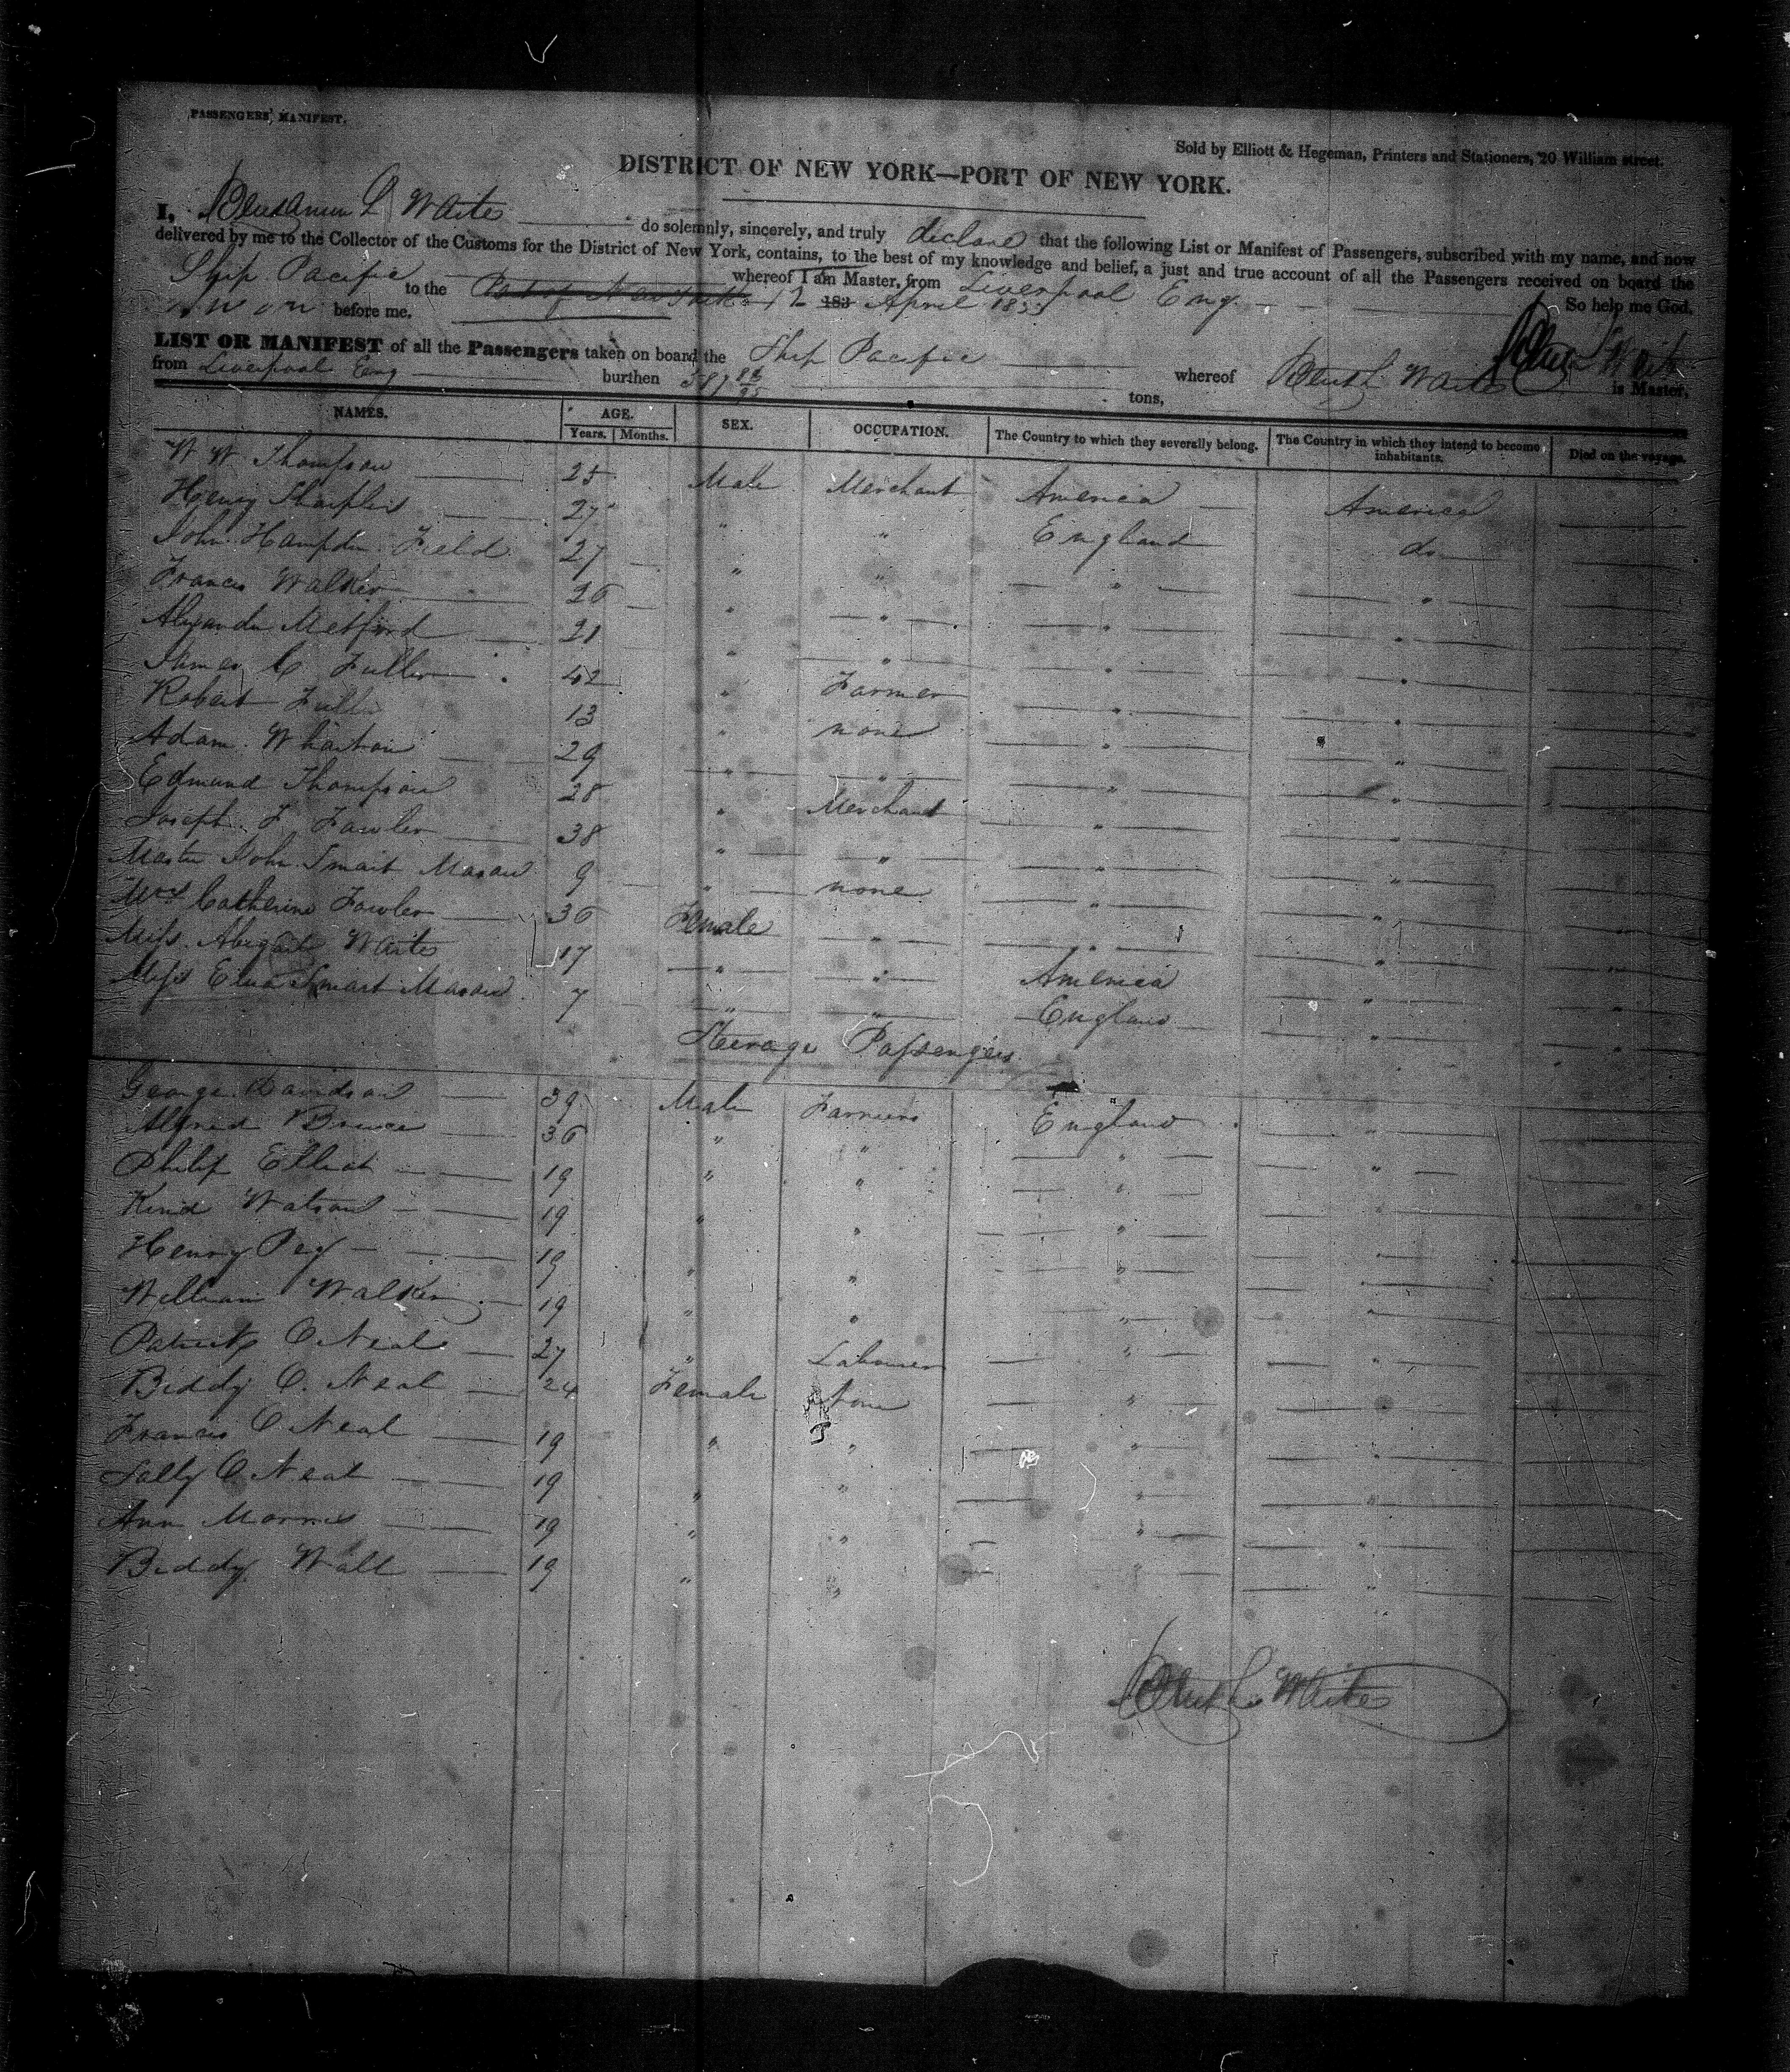 PASSENGERS' MANIFEST.
Sold by Elliott & Hegeman, Printers and Stationers, 20 William street.
DISTRICT OF NEW YORK—PORT OF NEW YORK.
I, Benjamin L Waite do solemnly, sincerely, and truly declare that the following List or Manifest of Passengers, subscribed with my name, and now
delivered by me to the Collector of the Customs for the District of New York, contains, to the best of my knowledge and belief, a just and true account of all the Passengers received on board the
Ship Pacific whereof I am Master, from Liverpool Eng.
to the Port of New York 12 183 April So help me God.
Sworn before me,
LIST OR MANIFEST of all the Passengers taken on board the Ship Pacific whereof Benj L Waite is Master,
from Liverpool Eng burthen 587 tons,
NAMES. AGE. SEX. OCCUPATION. The Country to which they severally belong. The Country in which they intend to become inhabitants. Died on the voyage.
Years. Months.
W W Thompson 25 Male Merchant America America
Henry Sharples 27 " " England do
John Hampden Field 27 " " " "
Francis Walker 26 " " " "
Alexander Metford 21 " " " "
James C Fuller 42 " Farmer " "
Robert Fuller 13 " none " "
Adam Wharton 29 " " " "
Edmund Thompson 28 " Merchant " "
Joseph F Fowler 38 " " " "
Master John Smart Mason 9 " none " "
Mrs Catherine Fowler 36 Female " " "
Miss Abigail Waite 17 " " America "
Miss Eliza Smart Mason 7 " " England "
Steerage Passengers
George Davidson 39 Male Farmers England "
Alfred Bruce 36 " " " "
Philip Elliot 19 " " " "
Kind Watson 19 " " "
Henry Peg 19 " " " "
William Walker 19 " " " "
Patrick O Neal 27 " Labourer " "
Biddy O. Neal 24 Female None " "
Francis O Neal 19 " " " "
Sally O Neal 19 " " " "
Ann Morris 19 " " " "
Biddy Wall 19 " " " "
Benj L Waite